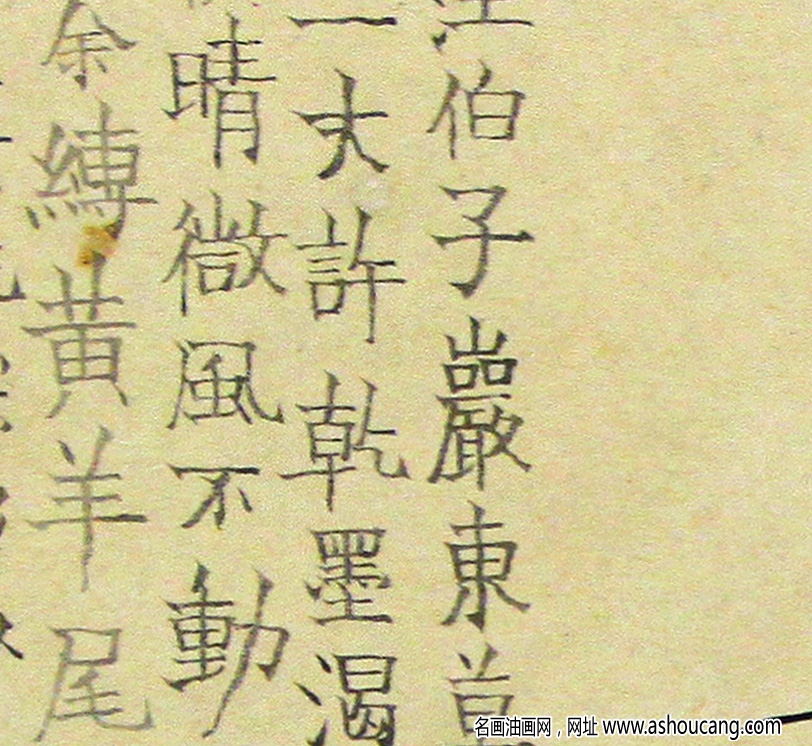 汪伯子巖東草
一丈許乾墨渴
晴微風不動
余縛黄羊尾
名画油画网，网址 www.ashoucang.com